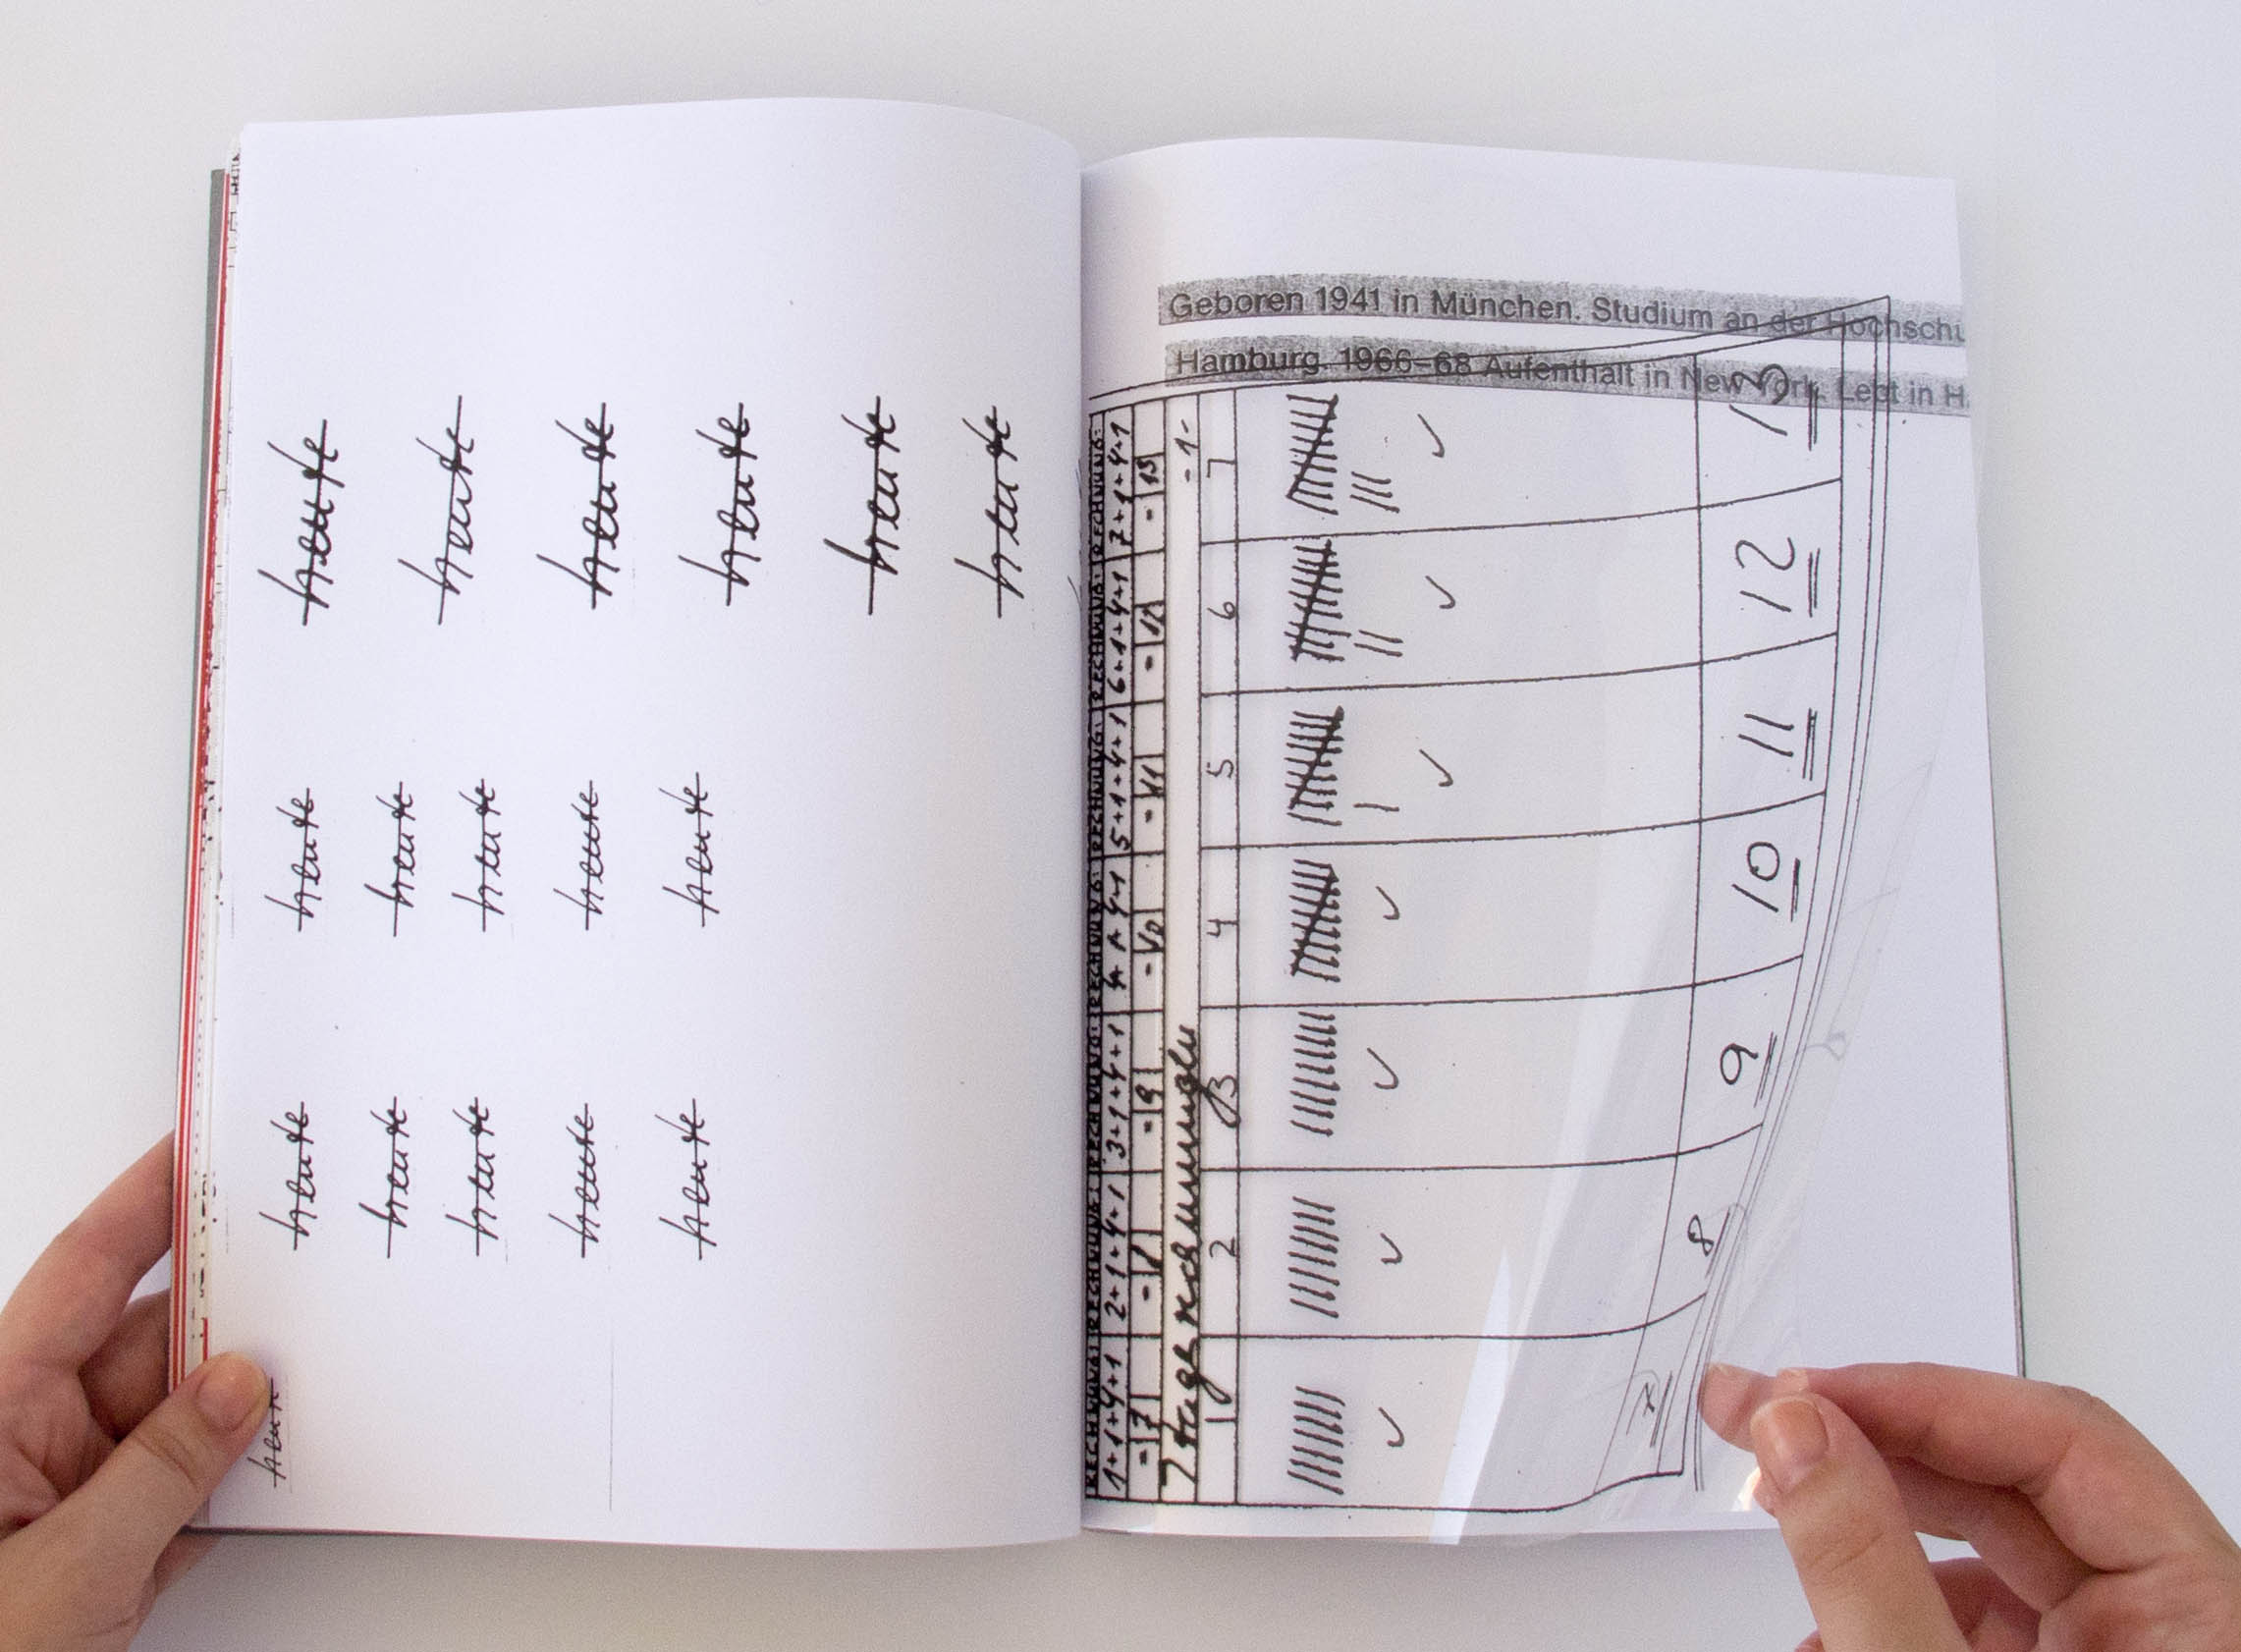 heute heute heute
heute heute heute
heute heute heute
heute heute heute
heute heute heute
heute
Geboren 1941 in München. Studium an der Hochschu
Hamburg. 1966–68 Aufenthalt in New York. Lebt in H
RECHNUNG: RECHNUNG: RECHNUNG: RECHNUNG: RECHNUNG: RECHNUNG: RECHNUNG:
1+1+4+1 2+1+4+1 3+1+4+1 4+1+4+1 5+1+4+1 6+1+4+1 7+1+4+1
=7 =8 =9 =10 =11 =12 =13
7 tagesrechnungen -1-
1 2 3 4 5 6 7
7 8 9 10 11 12 13